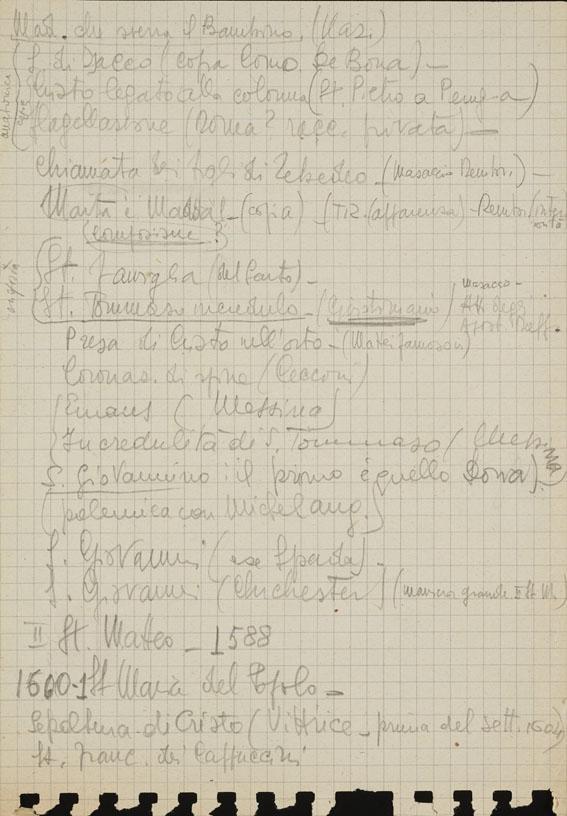 Mad. che serra il Bambino. (Naz.)
S. di Tacco (copia Como. De Bona) —
Cristo legato alla colonna (St. Pietro a Perug-a)
Flagellazione (Roma? racc. privata) —
anatomia
Chiamata dei figli di Zebedeo (Masaccio Rembr.) —
Marta e Maddal - (copia) - (Tiz. (affannosa) - Rembr. (inter
iorità
(composizione?)
St. Famiglia (del Sarto) -
St. Tommaso incredulo - (Giustiniani)
Masaccio -
Presa di Cristo nell'orto - (Mattei famoson)
Coronaz. di spine (Cecconi)
Emaus (Messina)
Incredulità di S. Tommaso (
S. Giovannino : il primo è quello Doria)
(polemica con Michelang.)
S. Giovanni (ex Spada) -
S. Giovanni (Chichester) (maniera grande II St. M.)
II St. Matteo - 1588
1600-1 St Maria del Popolo -
Sepoltura di Cristo (Vittrice - prima del Sett. 1604)
St. Franc. dei Cappuccini